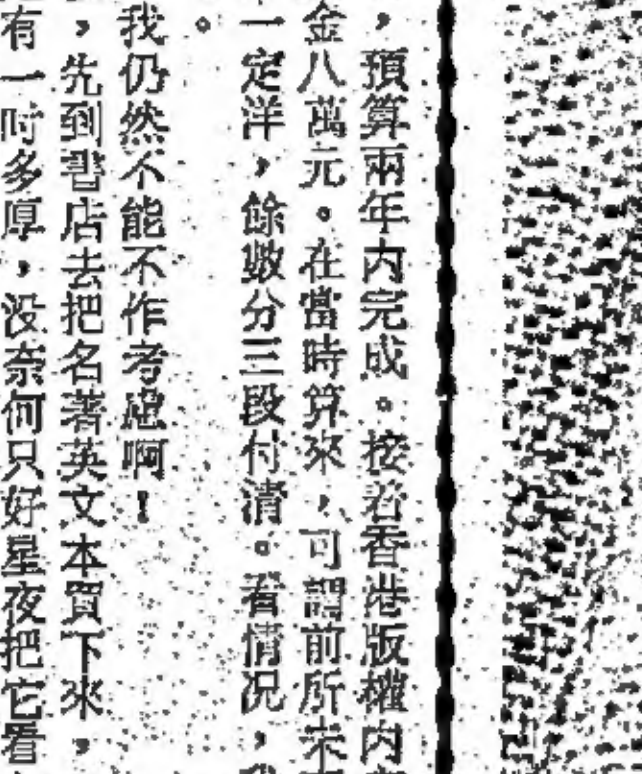 ，預算兩年內完成。接着香港版權內
金八萬元。在當時算來，可謂前所未
一定洋，餘數分三段付清。看情況，我
。
我仍然不能不作考慮啊！
，先到書店去把名著英文本買下來，
有一吋多厚，没奈何只好星夜把它看